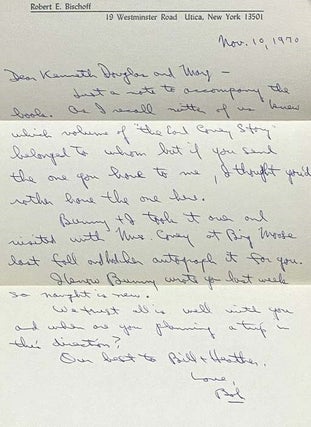 Robert E. Bischoff
19 Westminster Road Utica, New York 13501
Nov. 10, 1970
Dear Kenneth Douglas and Mary -
Just a note to accompany the
book. As I recall neither of us knew
which volume of "the Earl Covey Story"
belonged to whom but if you send
the one you have to me, I thought you'd
rather have the one here.
Bunny & I took it over and
visited with Mrs. Covey at Big Moose
last fall and had her autograph it for you.
I know Bunny wrote you last week
so naught is new.
We trust all is well with you
and when are you planning a trip in
this direction?
Our best to Bill & Heather.
Love,
Bob